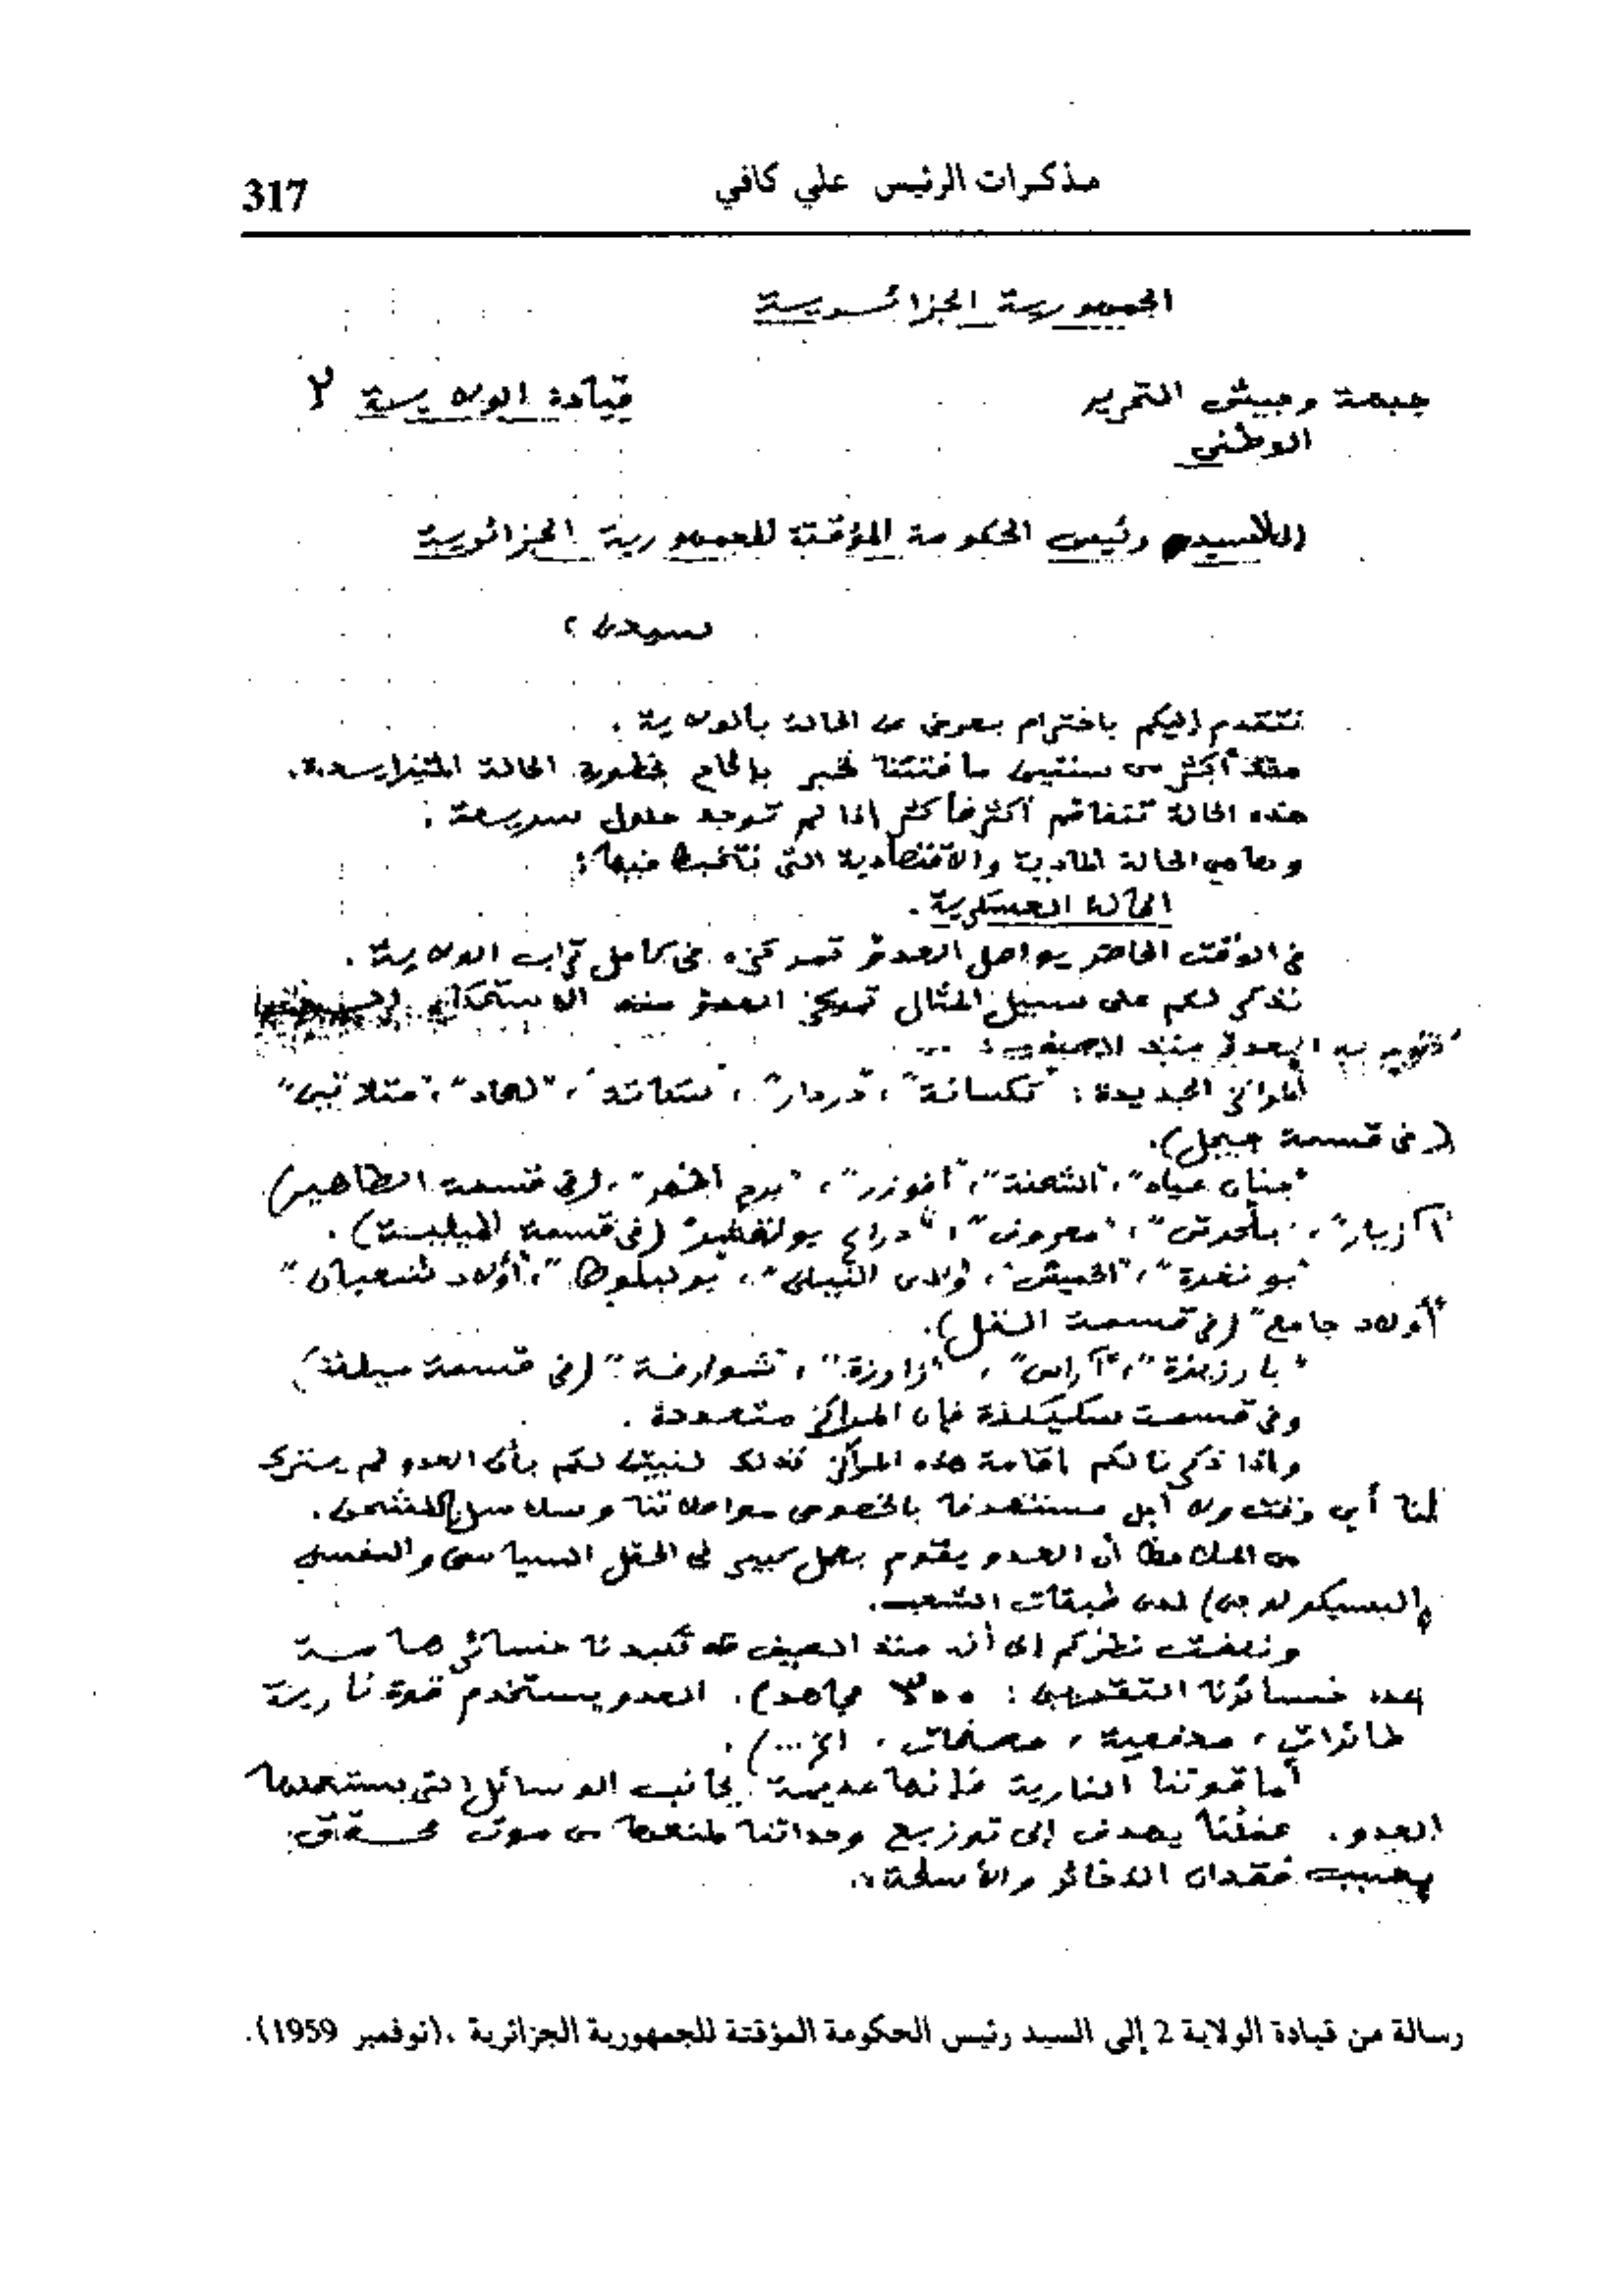 مذكرات الرئيس علي كافي
317
الجمهورية الجزائرية
جبهة وجيش التحرير
الوطني
قيادة الولاية ٢
السيد رئيس الحكومة المؤقتة للجمهورية الجزائرية
سيدى ،
نتقدم إليكم باحترام بعرض عن الحالة بالولاية .
منذ أكثر من سنتين ما فتئنا نخبر بإلحاح بخطورة الحالة المتزايدة.
هذه الحالة تتفاقم أكثر فأكثر إذا لم توجد حلول سريعة :
وها هي الحالة المادية والاقتصادية التي نتخبط فيها :
الحالة العسكرية .
في الوقت الحاضر يواصل العدو تمركزه في كامل تراب الولاية .
نذكر لكم على سبيل المثال تمركز العدو منذ
العدو منذ الصيف :
المراكز الجديدة : "تكسانة" ، "دردار" ،
(في قسمة جيجل).
"جنان عياد" ، "الشحنة" ، "افوزر" ، "برج الخضر" ، (في قسمة الطاهير)
"بلحرش" ، "معروف" ، "دراع (في قسمة الميلية) .
"بونغرة" ، "الحميش" ، ، "بولبلوط" ، "أولاد شعبان"
"أولاد جامع" (في قسمة القل).
"آراس" ، "زاوزة" ، (في قسمة ميلة)
وفي قسمة سكيكدة فإن المراكز متعددة .
وإذا ذكرنا لكم اقامة هذه المراكز فذلك لنبين لكم بأن العدو لم يترك
لنا أي وقت ولا أجل مستهدفا بالخصوص مواصلاتنا
من الملاحظ أن العدو يقوم بعمل كبير في الحقل السياسي والنفسي
(البسيكولوجي) لدى طبقات الشعب.
ونلفت نظركم إلى أنه منذ الصيف قد تكبدنا خسائر
عدد خسائرنا التقريبي : ٣٠٠ مجاهد). العدو يستخدم قوة نارية
طائرات ، مدفعية ، مصفحات ، الخ...) .
أما قوتنا النارية فإنها عديمة بجانب الوسائل التي يستعملها
العدو . يهدف إلى توزيع وحداتنا لمنعها من موت محقق
بسبب فقدان الذخائر والأسلحة.
رسالة من قيادة الولاية 2 إلى السيد رئيس الحكومة المؤقتة للجمهورية الجزائرية ،(نوفمبر 1959).